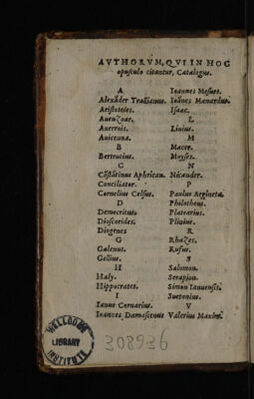 AVTHORVM, QVI IN HOC
opusculo citantur, Catalogus.
A
Alexāder Trallianus.
Aristoteles.
Auenzoar.
Auerrois.
Auicenna.
B
Bertrutius.
C
Cōstātinus Aphrican.
Conciliator.
Cornelius Celsus.
D
Democritus.
Dioscorides.
Diogenes
G
Galenus.
Gellius.
H
Haly.
Hippocrates.
I
Ianus Cornarius.
Ioannes Damascenus
Ioannes Mesues.
Ioānes Manardus.
Isaac.
L
Liuius.
M
Macer.
Moyses.
N
Nicander.
P
Paulus Aegineta.
Philotheus.
Platearius.
Plinius.
R
Rhazes.
Rufus.
S
Salomon.
Serapion.
Simon Ianuensis.
Suetonius.
V
Valerius Maxim.
WELLCOME
LIBRARY
INSTITUTE
308936